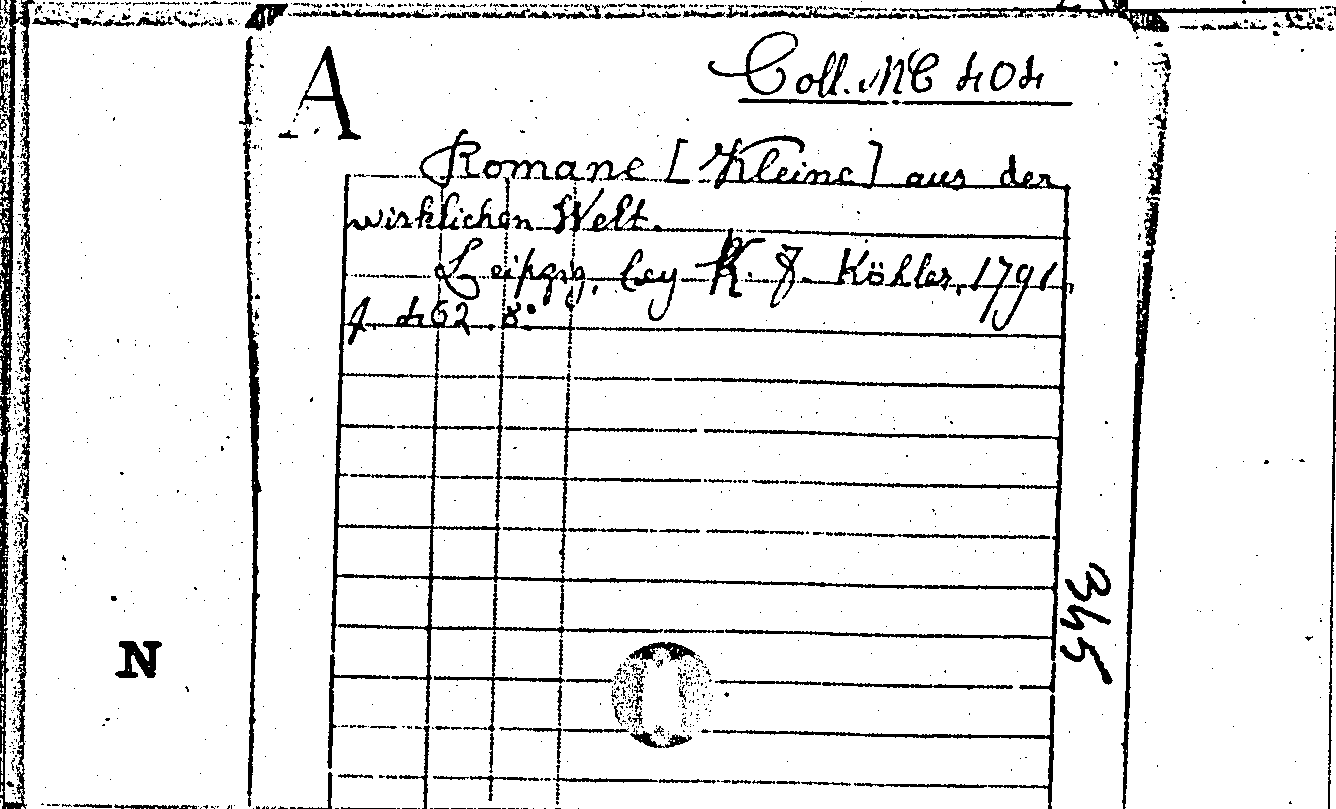 A
Coll. NC 404
Romane [Kleine] aus der
wirklichen Welt.
Leipzig, bey K. F. Köhler, 1791,
p. 462 8°
345
N